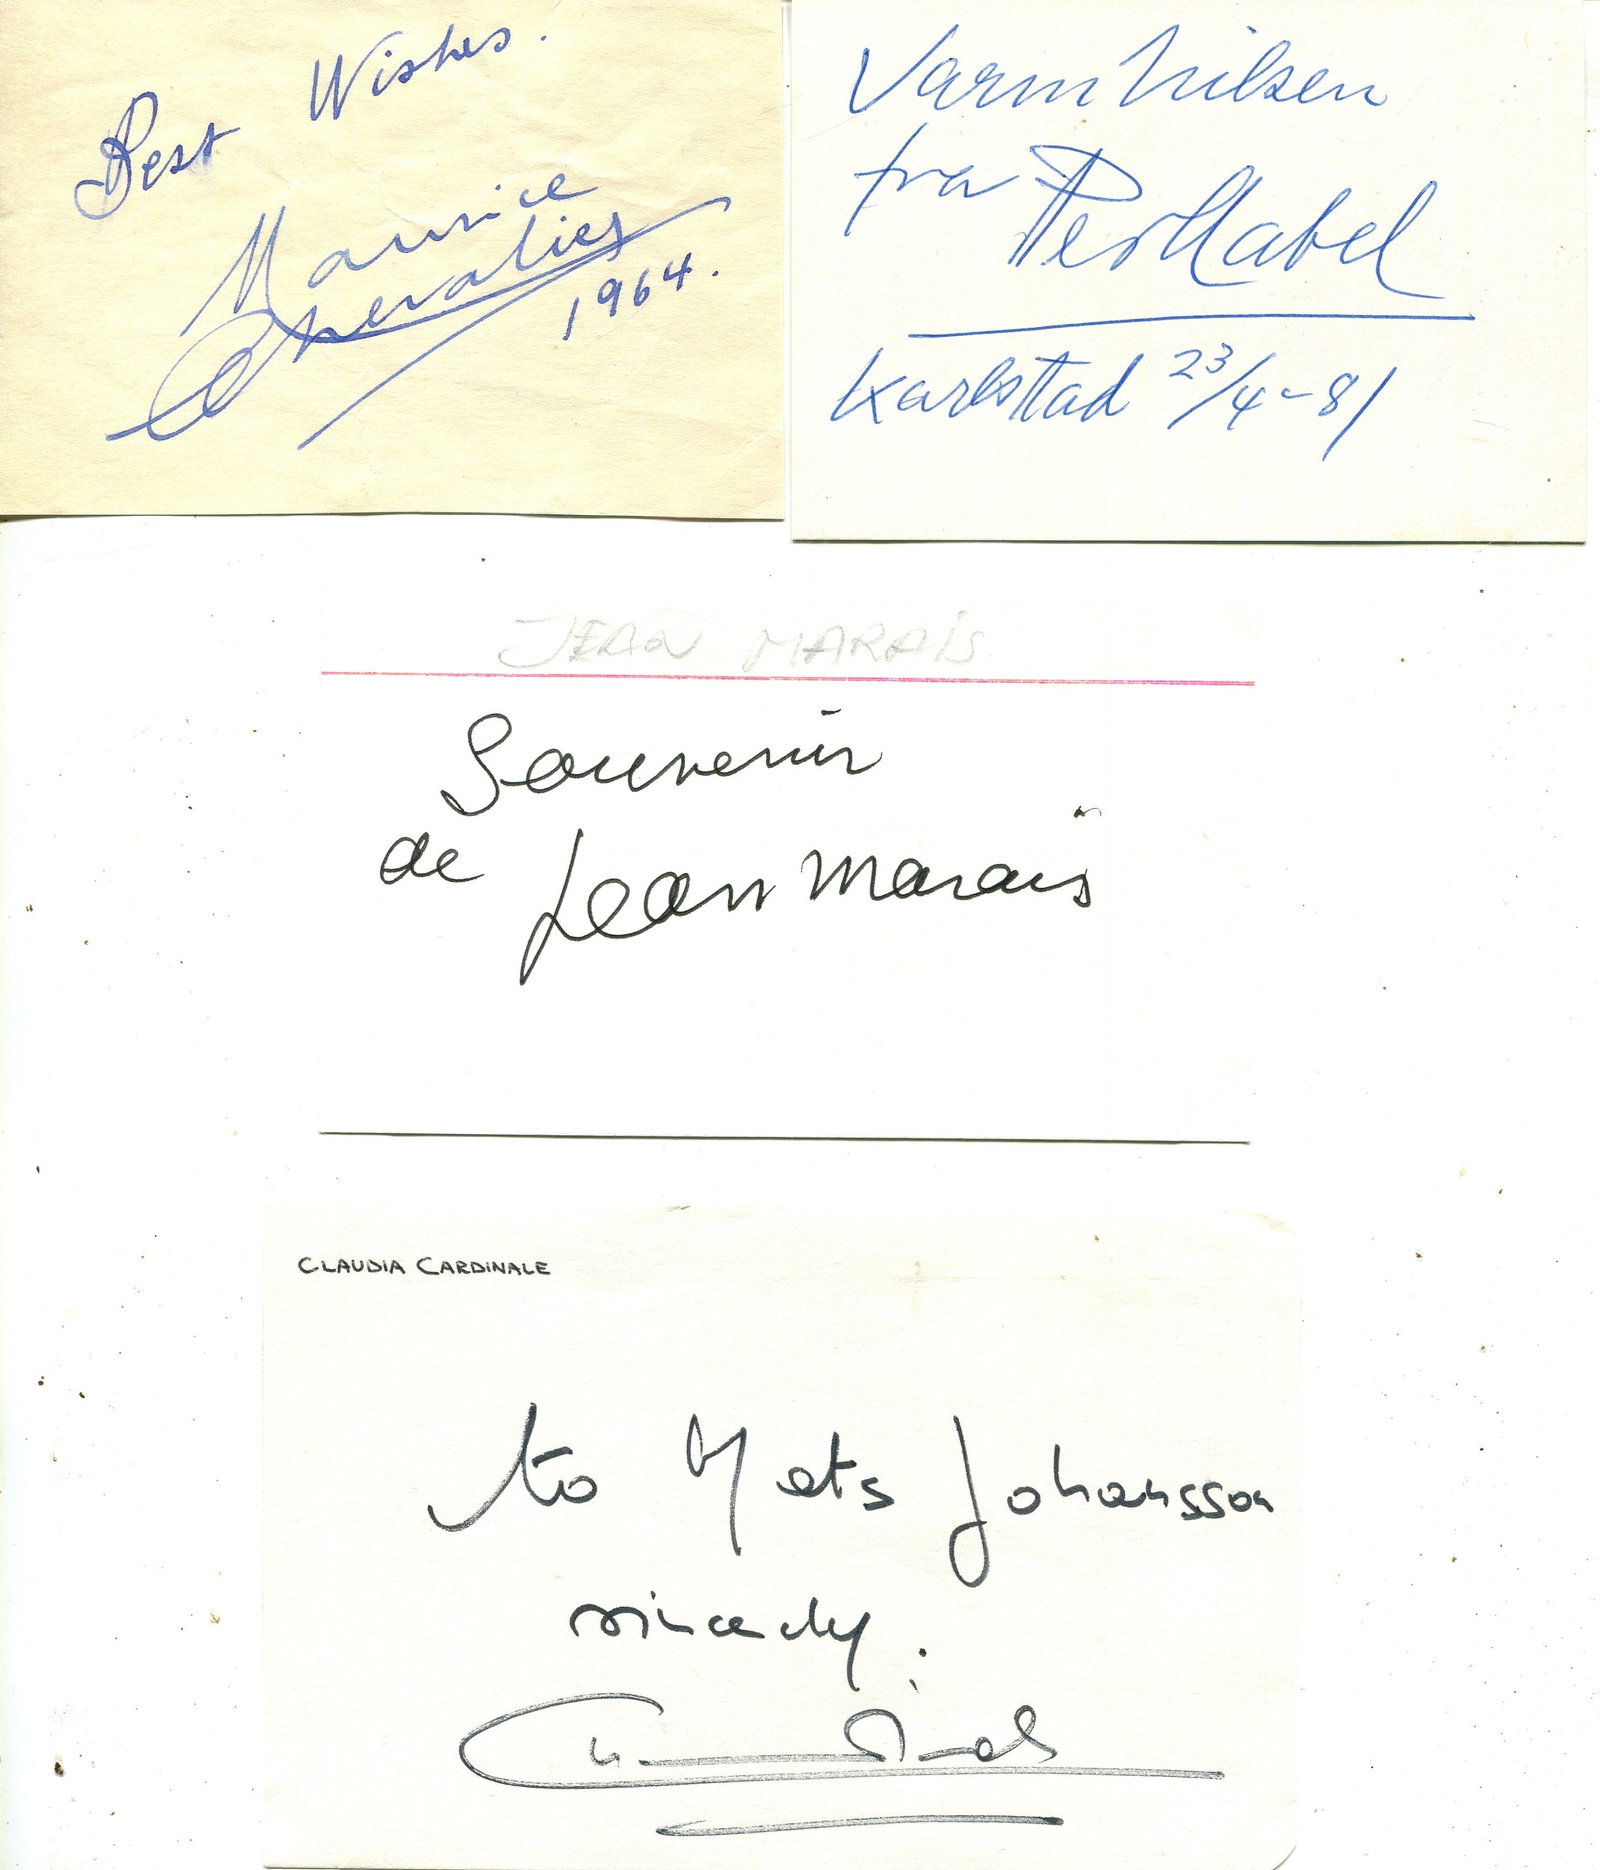 Best Wishes.
Maurice
Chevalier
1964.
Varm hilsen
fra Per Aabel
Karlstad 23/4-81
JEAN MARAIS
Souvenir
de Jean Marais
CLAUDIA CARDINALE
to Mats Johansson
sincerely.